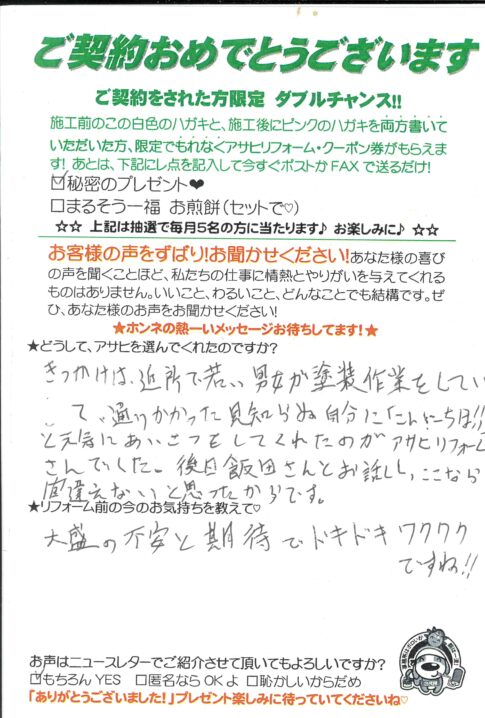 ご契約おめでとうございます
ご契約をされた方限定 ダブルチャンス!!
施工前のこの白色のハガキと、施工後にピンクのハガキを両方書いて
いただいた方、限定でもれなくアサヒリフォーム・クーポン券がもらえま
す! あとは、下記にレ点を記入して今すぐポストかFAXで送るだけ!
☑秘密のプレゼント❤
□まるそう一福 お煎餅(セットで♡)
☆☆ 上記は抽選で毎月5名の方に当たります♪ お楽しみに♪ ☆☆
お客様の声をずばり!お聞かせください!あなた様の喜び
の声を聞くことほど、私たちの仕事に情熱とやりがいを与えてくれる
ものはありません。いいこと、わるいこと、どんなことでも結構です。ぜ
ひ、あなた様のお声をお聞かせください!
★ホンネの熱ーいメッセージお待ちしてます!★
★どうして、アサヒを選んでくれたのですか?
きっかけは、近所で若い男女が塗装作業をしてい
て、通りかかった見知らぬ自分に「こんにちは!!」
と元気にあいさつをしてくれたのがアサヒリフォーム
さんでした。後日飯田さんとお話しし、ここなら
間違えないと思ったからです。
★リフォーム前の今のお気持ちを教えて♡
大盛の不安と期待でドキドキワクワク
ですね!!
お声はニュースレターでご紹介させて頂いてもよろしいですか?
☑もちろん YES □匿名なら OK よ □恥かしいからだめ
「ありがとうございました!」プレゼント楽しみに待っていてくださいね♡